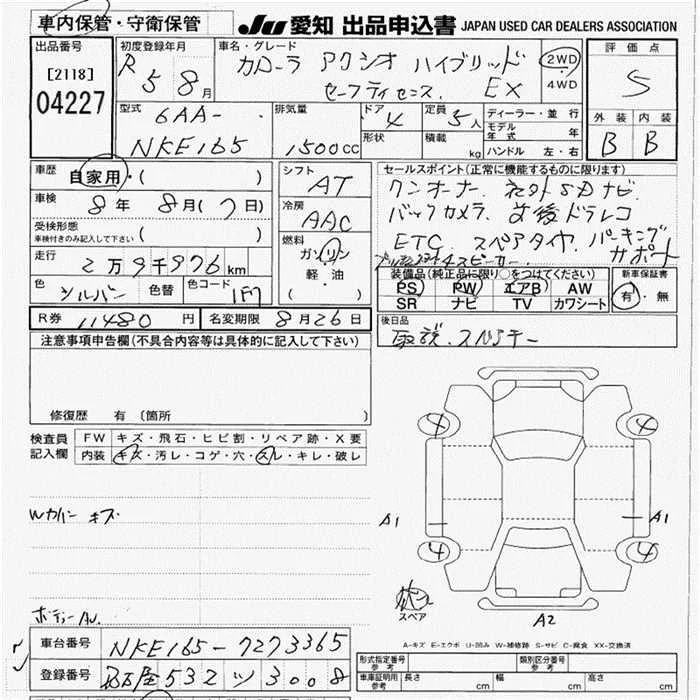 車内保管・守衛保管
JU 愛知 出品申込書 JAPAN USED CAR DEALERS ASSOCIATION
出品番号 [2118] 04227
初度登録年月 R5 8月
車名・グレード カローラ アクシオ ハイブリッド
セーフティセンス EX
2WD・4WD
評価点 S
外装 内装
B B
型式 6AA-
NKE165
排気量 1500cc
ドア 4
形状
定員 5人
積載 kg
ディーラー・並行
モデル年式 年
ハンドル 左・右
車歴 自家用・( )
車検 8年 8月(7日)
受検形態
車検付きのみ記入して下さい ( )
走行 2万9千976km
色 シルバー 色替 色コード 1F7
シフト AT
冷房 AAC
燃料 ガソリン
軽・油
( )
セールスポイント(正常に機能するものに限ります)
ワンオーナー、社外SDナビ
バックカメラ、前後ドラレコ
ETC、スペアタイヤ、パーキングサポート
4スピーカー
装備品(純正品に限り○をつけてください)
PS PW エアB AW
SR ナビ TV カワシート
新車保証書
有・無
R券 11480円 名変期限 8月26日
後日品
取説、スペアキー
注意事項申告欄(不具合内容等は具体的に記入して下さい)
修復歴 有 〔箇所 〕
検査員記入欄
FW キズ・飛石・ヒビ割・リペア跡・X要
内装 キズ・汚レ・コゲ・穴・スレ・キレ・破レ
Wカバー キズ
4 4
A1 A1
4 4
スペア
A2
ボディーAU.
A-キズ E-エクボ U-凹み W-補修跡 S-サビ C-腐食 XX-交換済
車台番号 NKE165-7273365
登録番号 名古屋 532 ツ 3008
形式指定番号 参考
類別区分番号 参考
車庫証明用 参考 長さ cm 幅 cm 高さ cm